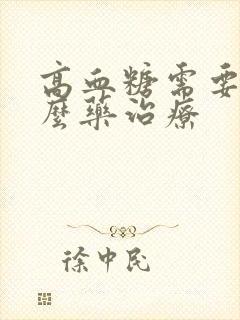 高血糖需要
麼藥治療
徐中民